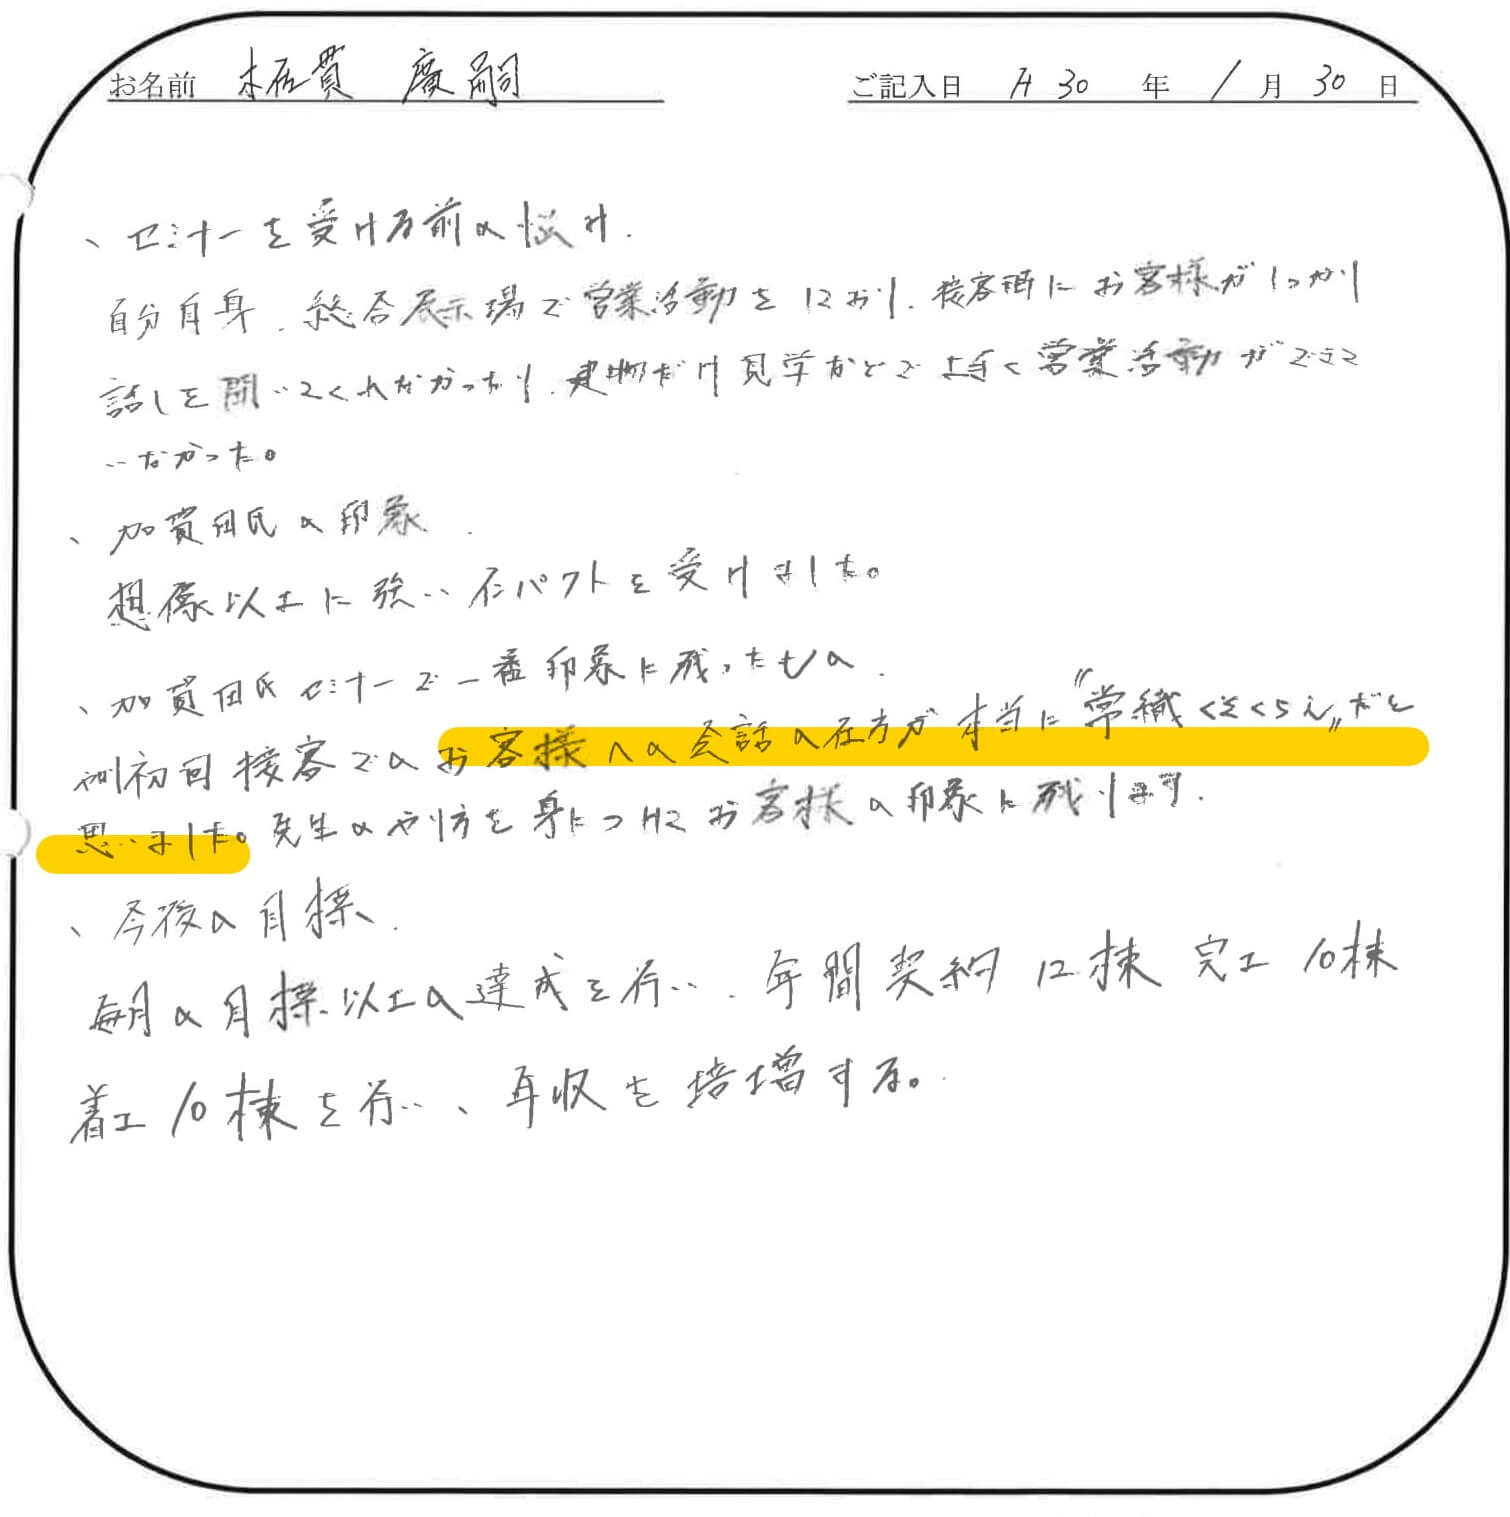 お名前 貫 廣嗣 ご記入日 H30 年 1 月 30 日
、セミナーを受ける前の悩み.
自分自身、総合展示場で営業活動をしており、接客時にお客様がしっかり
話しを聞いてくれなかったり、建物だけ見学などで上手く営業活動ができて
いなかった。
、加賀田氏の印象.
想像以上に強いインパクトを受けました。
、加賀田氏セミナーで一番印象に残ったもの.
初回接客でのお客様への会話の在方が本当に"常識くそくらえ"だと
思いました。先生のやり方を身につけてお客様の印象に残ります.
、今後の目標.
毎月の目標以上の達成を行い、年間契約12棟 完工10棟
着工10棟を行い、年収を培増する。